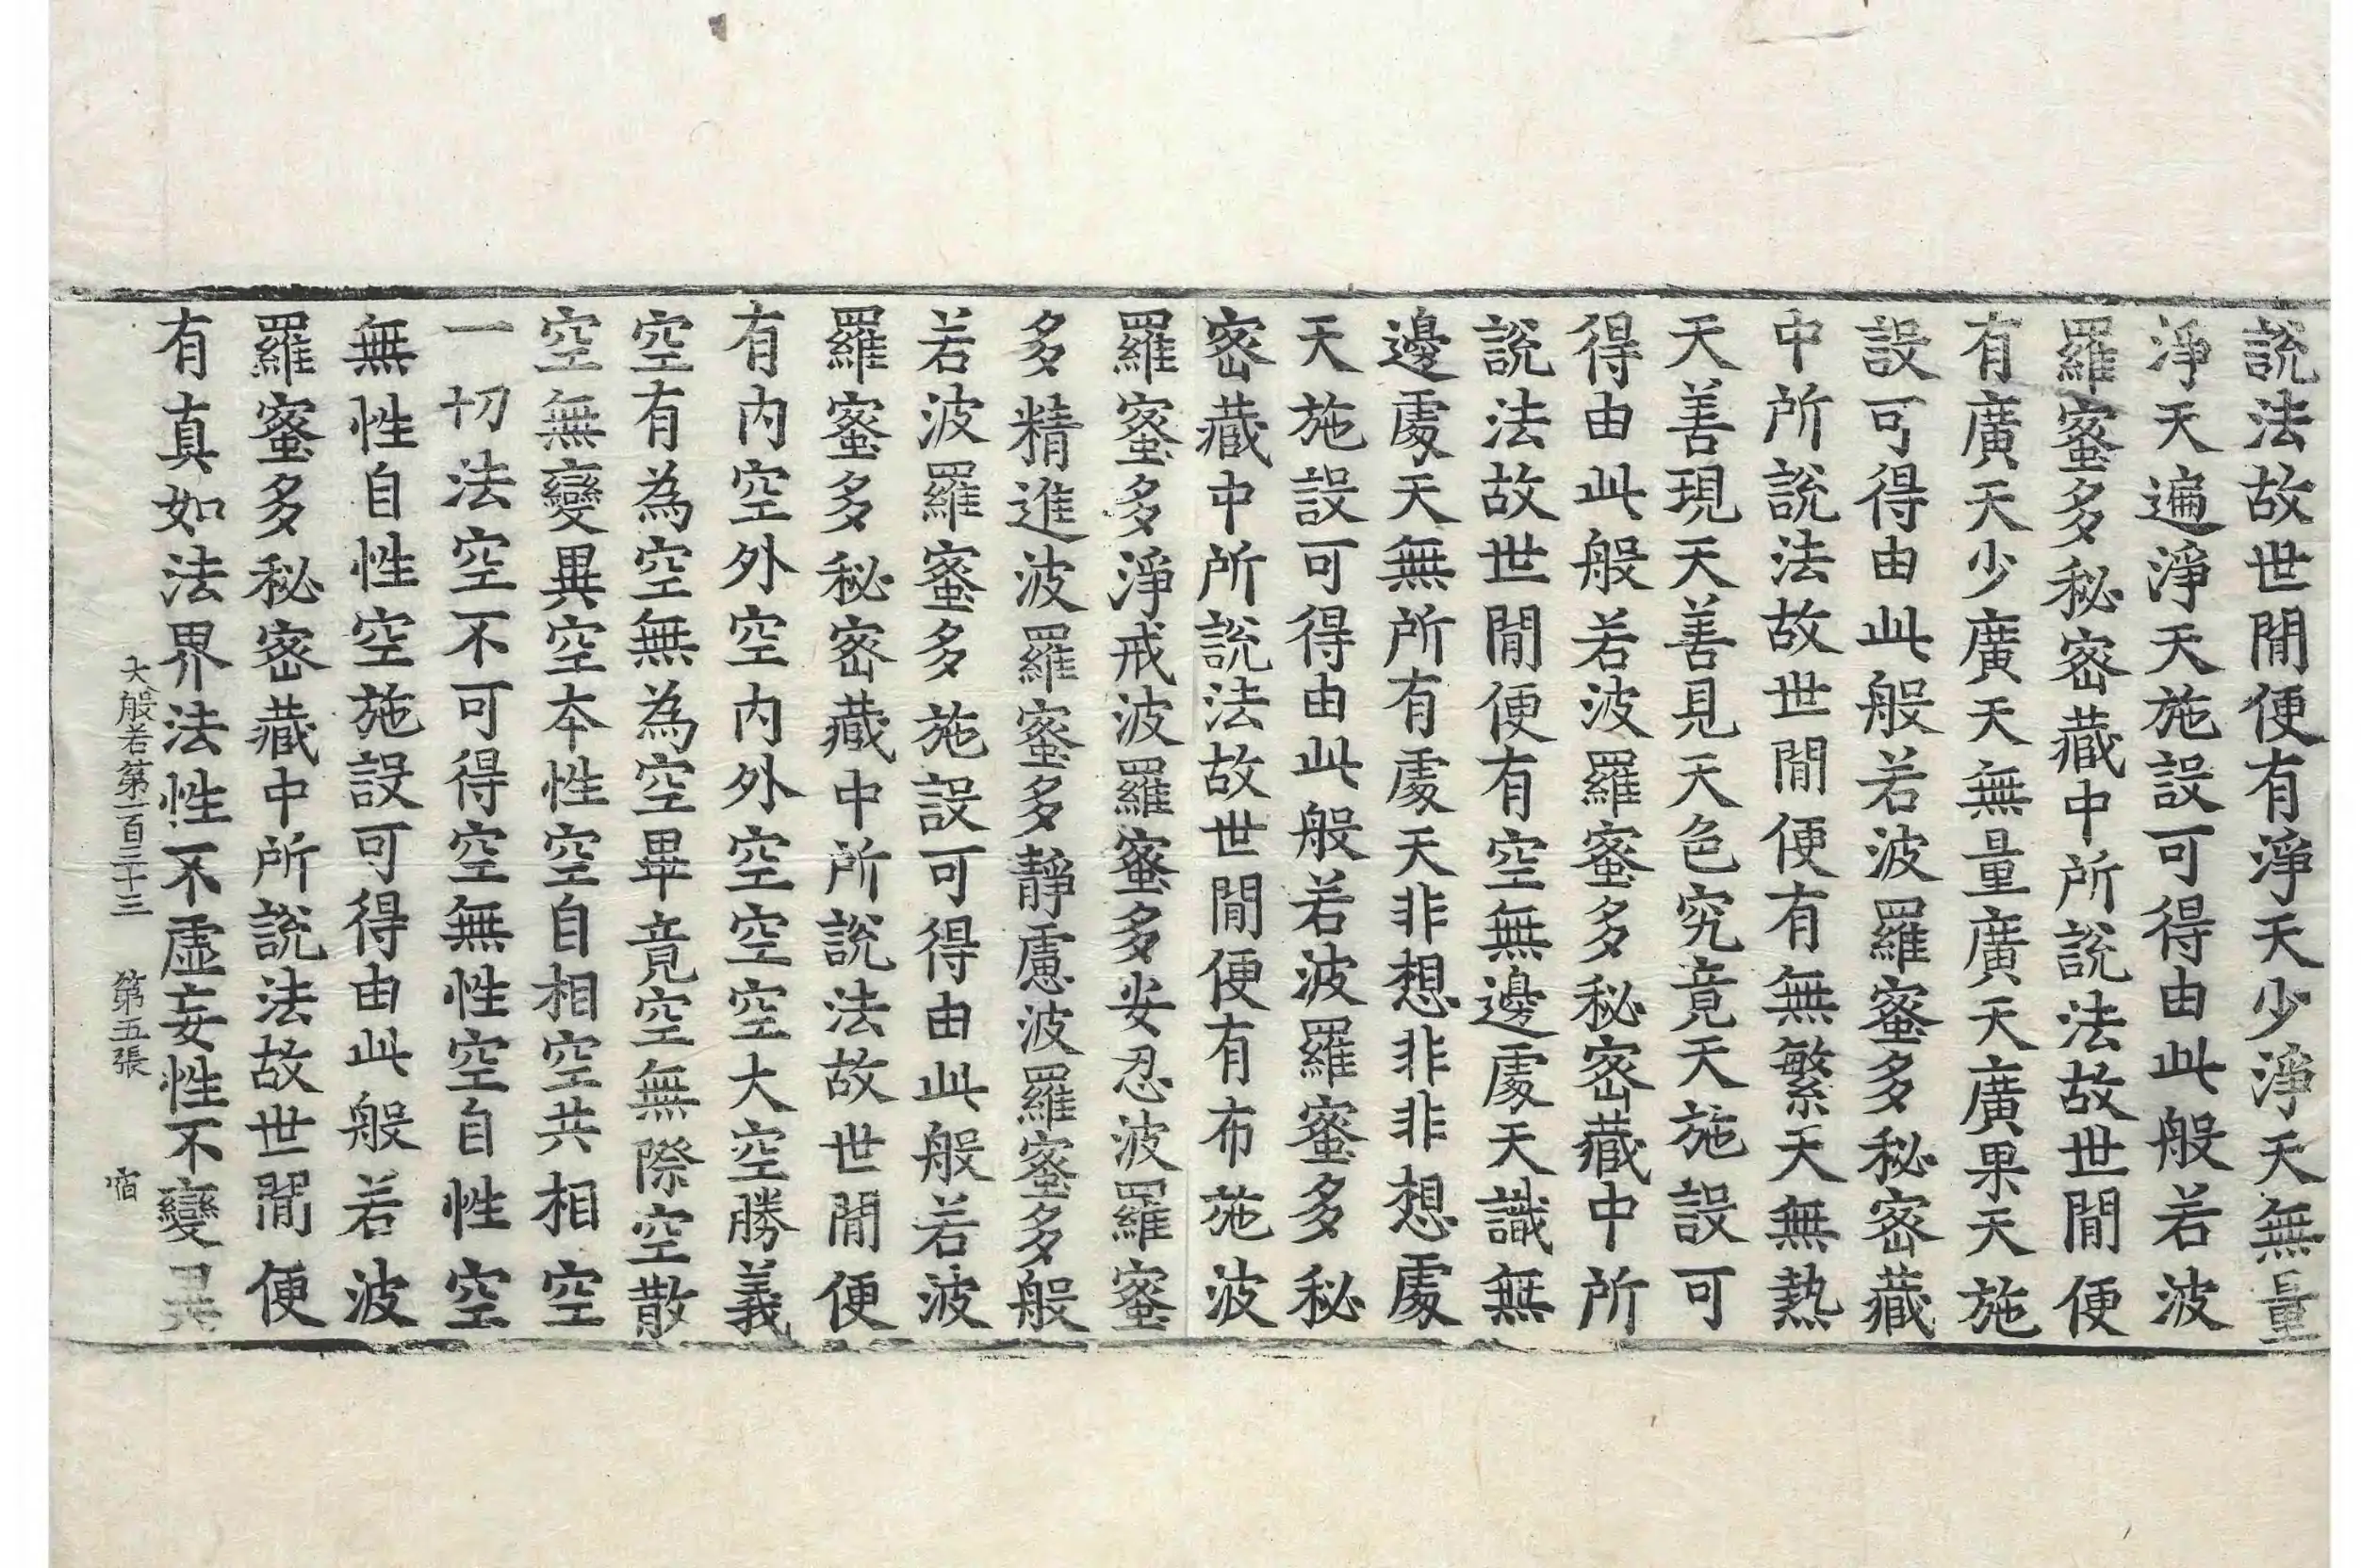 說法故世閒便有淨天少淨天無量
淨天遍淨天施設可得由此般若波
羅蜜多秘密藏中所說法故世閒便
有廣天少廣天無量廣天廣果天施
設可得由此般若波羅蜜多秘密藏
中所說法故世閒便有無繁天無熱
天善現天善見天色究竟天施設可
得由此般若波羅蜜多秘密藏中所
說法故世閒便有空無邊處天識無
邊處天無所有處天非想非非想處
天施設可得由此般若波羅蜜多秘
密藏中所說法故世閒便有布施波
羅蜜多淨戒波羅蜜多安忍波羅蜜
多精進波羅蜜多靜慮波羅蜜多般
若波羅蜜多施設可得由此般若波
羅蜜多秘密藏中所說法故世閒便
有內空外空內外空空空大空勝義
空有為空無為空畢竟空無際空散
空無變異空本性空自相空共相空
一切法空不可得空無性空自性空
無性自性空施設可得由此般若波
羅蜜多秘密藏中所說法故世閒便
有真如法界法性不虛妄性不變異
大般若第一百二十三 第五張 宿